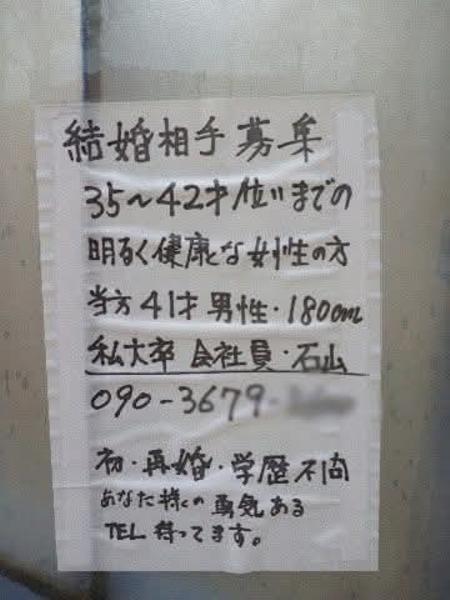 結婚相手募集
35~42才位いまでの
明るく健康な女性の方
当方41才男性・180cm
私大卒 会社員・石山
090-3679-
初・再婚・学歴不問
あなた様の勇気ある
TEL待ってます。